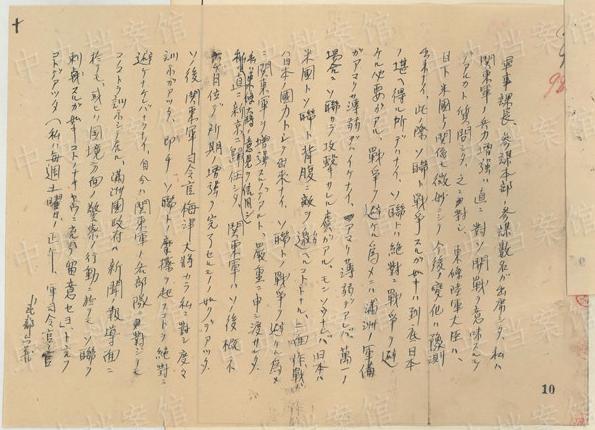 軍事課長、参謀本部ノ参謀数名ガ出席シタ、私ハ
関東軍ノ兵力増強ハ直ニ対ソ開戦ヲ意味スルノ
デアルカト質問シタ、之ニ対シ、東條陸軍大臣ハ、
目下米国トノ関係ハ微妙ニシテ今後ノ変化ハ豫測
出来ナイ、此ノ際ソ聯ト戦争スルガ如キハ到底日本
ノ堪ヘ得ル所デハナイ、ソ聯トハ絶対ニ戦争ヲ避
ケル必要ガアル、戦争ヲ避ケル為メニハ満洲ノ軍備
ガアマリ薄弱デハイケナイ、アマリ薄弱デアレバ萬一ノ
場合ソ聯カラ攻撃サレル虞ガアル、モシソウナレバ日本ハ
米国トソ聯ト腹背ニ敵ヲ
ハ日本ノ国力トシテ出来ナイ、ソ聯トノ戦争ヲ避ケル為メ
ニ関東軍ヲ増強スルノデアルト、厳重ニ申シ渡サレタ、
直ニ新京ニ帰任シタ、関東軍ハソノ後概ネ
ヶ月位デ所期ノ増強ヲ完了セルモノノ如クデアッタ
ソノ後関東軍司令官梅津大将カラ私ニ対シ度々
訓示ガアッタ、即チソ聯トノ摩擦ヲ起スコトヲ絶対ニ
避ケナケレバナラナイ、自分ハ関東軍ノ各部隊ニ対シテモ
コノコトヲ訓示シテ居ル、満洲国政府ノ新聞報導面ニ
於テモ、或ハ国境方面ノ警察ノ行動ニ於テモ、ソ聯ヲ
刺戟スルガ如キコトノナキ様ニ充分留意セヨ、トノ
コトデアッタ、(私ハ毎週土曜日ノ正午、軍司令官官
10
中 档案馆